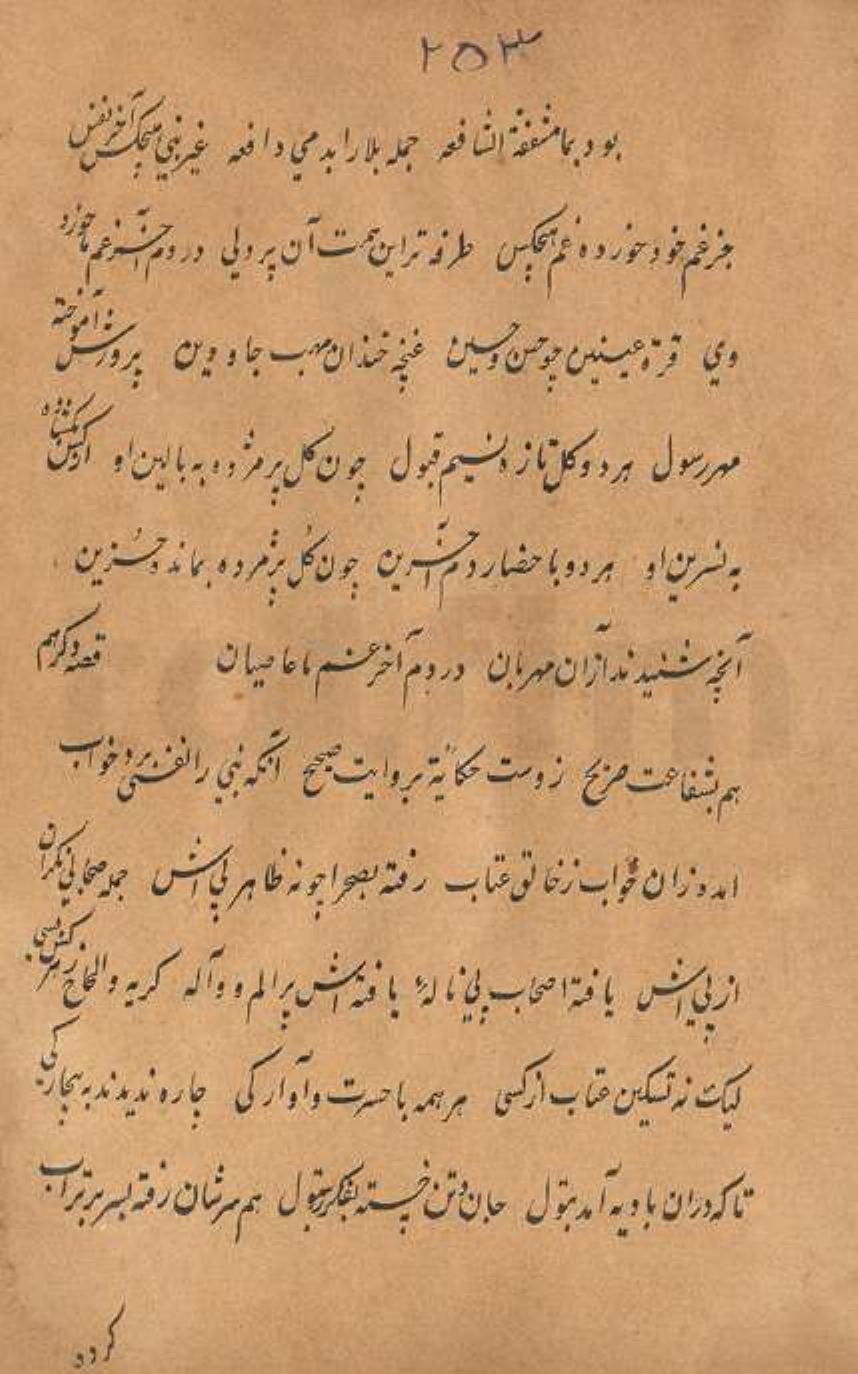 ۲۵۳
بود بما مشفقة الشافعه جمله بلا را بدمی دافعه غیر نبی هیچکس آخر نفس
جز غم خود خورده غم هیچکس طرفه تر این همت آن پر دلی در دم آخر غم ما خورد
وی قرة عینین چو حسن و حسین غنچه خندان مهب جا و دین پرورش آموخته
مهر رسول هر دو کل تازه نسیم قبول چون کل پرمژده به بالین او
به نسرین او هر دو باحضار دم آخرین چون کُل پژمرده بماند و حُزین
آنچه شنیدند ازان مهربان در دم آخر غم ما عاصیان قصه دکرهم
هم بشفاعت صریح زوست حکایة بروایت صحیح آنکه نبی را نفسی برد خواب
امد و زان خواب زخالق عتاب رفته بصحرا چو نه ظاهر پی اش جمله صحابی نکران
از پی اش یافته اصحاب پی ناله یافته اش پر الم و واله کریه و الحاح ز هر کس بسی
لیک نه تسکین عتاب از کسی هر همه با حسرت و آوارکی چاره ندیدند به بیچارکی
تا که دران بادیه آمد بتول جان و تن خسته بفکر رسول هم سر شان رفته بسر بر تراب
کرده